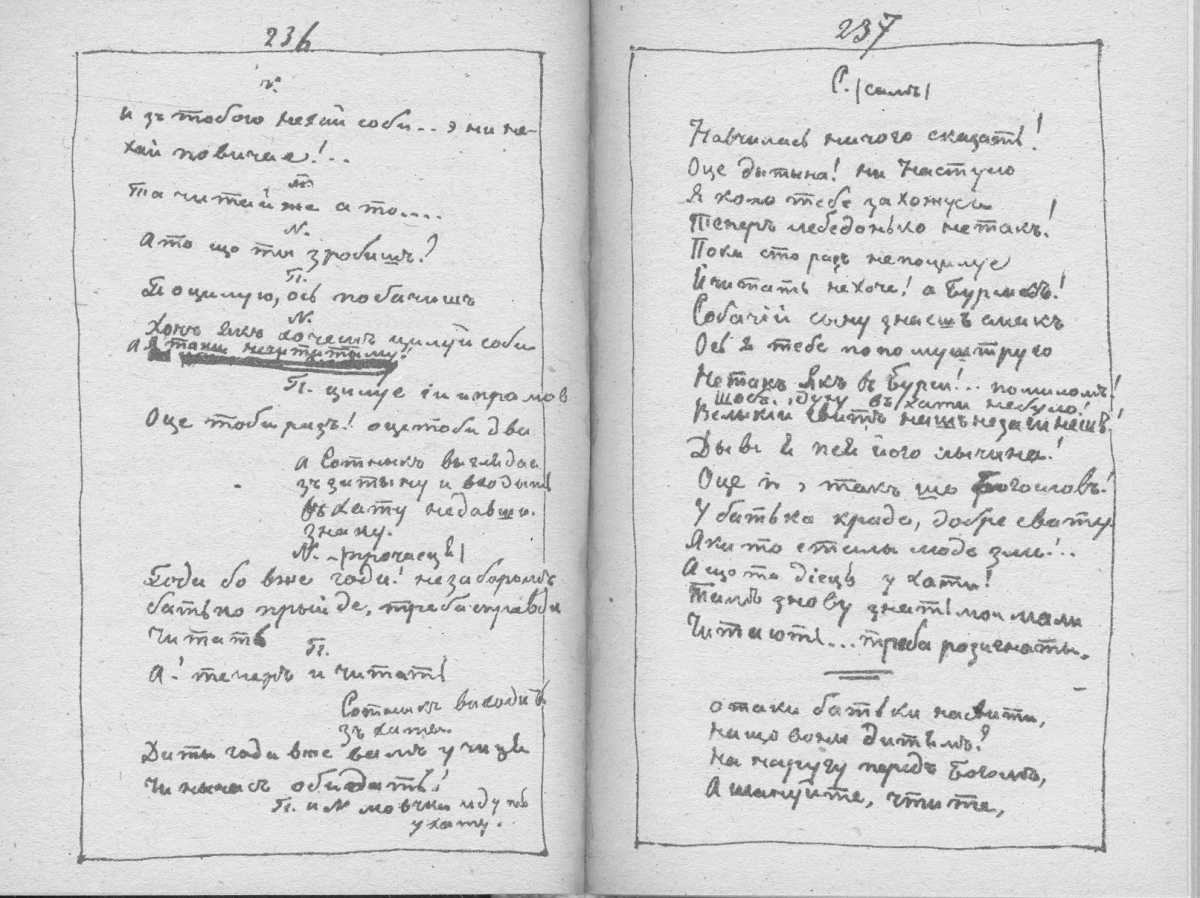 236
N.
и зъ тобою нехай соби.. э ни не-
хай повичае!..
П.
Та читай же а то....
N.
А то що ты зробишъ?
П.
Поцилую, ось побачишъ
N.
Хочъ якъ хочешъ цилуй соби
а я таки нечитатыму!
П. цилуе іи и промов
Оце тоби разъ! оце тоби два
а Сотныкъ выглядае
зъ за тыну и входыть
въ хату недавши
знаку.
N. (пручаеця)
Годи бо вже годи! незабаромъ
батько прыйде, треба справди
читать
П.
А! теперъ и читать
Сотныкъ выходить
зъ хаты.
Диты годи вже вамъ учиця
Чи нычасъ обидать!
П. и N мовчки идутъ
у хату.
237
С. (самъ)
Навчилась ничого сказать!
Оце дытына! ни Настусю
Я коло тебе захожусь!
Теперъ лебедонько не такъ!
Поки сто разъ непоцилуе
Й читать нехоче! а Бурлакъ!
Собачій сыну знаешъ смакъ
Ось я тебе попомуштрую
Не такъ якъ в Бурси!... помиломъ!
Щобъ духу въ хати небуло!
Велыкый свитъ нашъ незагинешъ!
Дывы й пей його лычына!
Оце то э такъ що Богословъ!
У батька краде, добре свату
Яки то стилы люде злы!..
А що то діець у хати?
Тамъ знову знать мои мали
Читають... треба розигнаты.
отаки батьки насвити,
нащо воны дитямъ?
На наругу передъ Богомъ,
А шануйте, чтите,